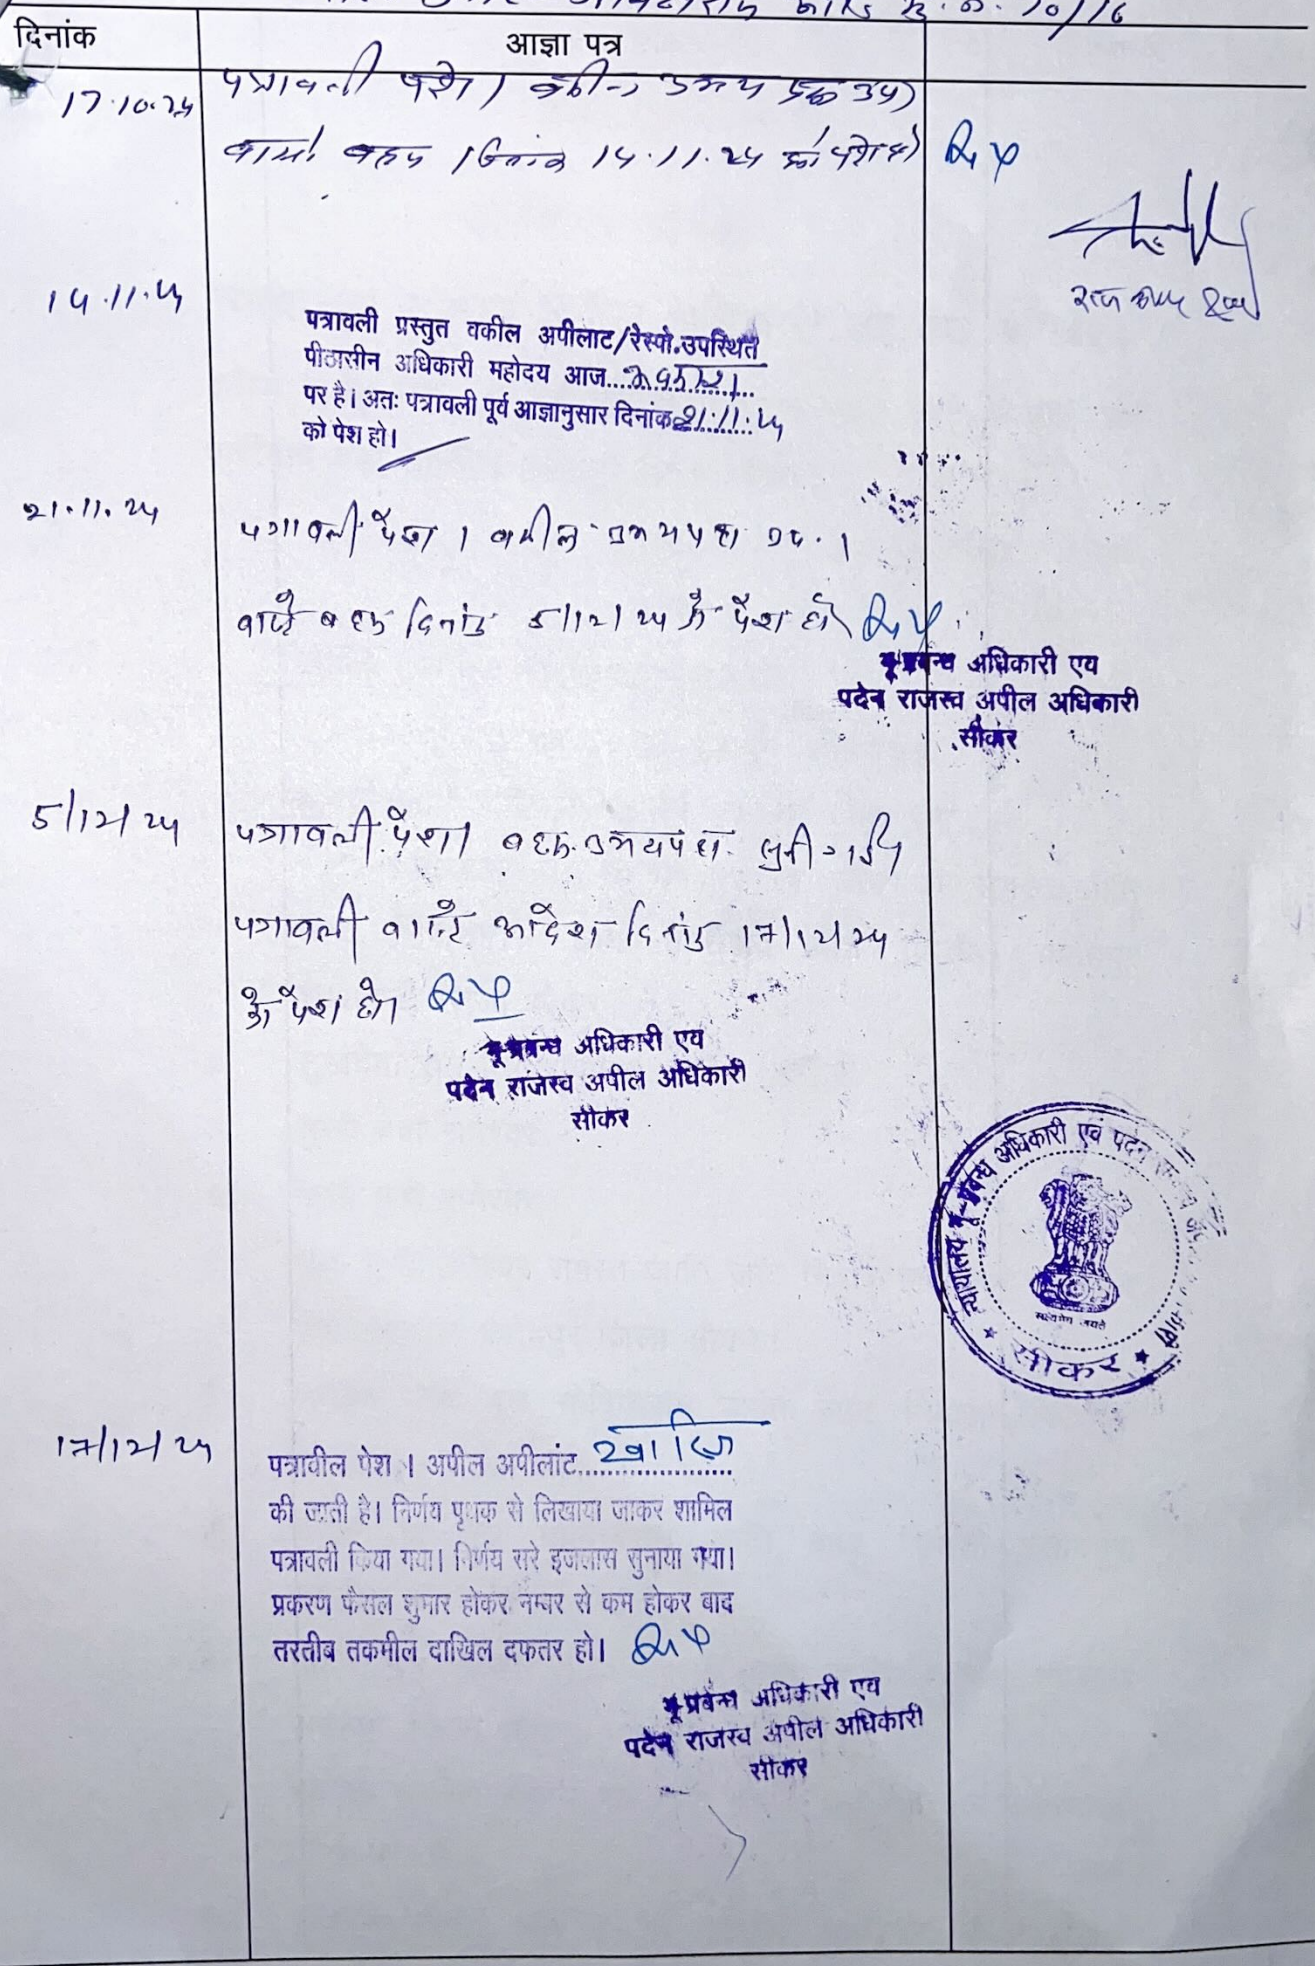 मु. न. 10/16
दिनांक
आज्ञा पत्र
17.10.24
पत्रावली पेश। वकील उभय पक्ष उप।
वास्ते बहस दिनांक 14.11.24 को पेश हो
14.11.24
पत्रावली प्रस्तुत वकील अपीलाट/रेस्पो.उपस्थित
पीठासीन अधिकारी महोदय आज....अवकाश
पर है। अतः पत्रावली पूर्व आज्ञानुसार दिनांक 21.11.24
को पेश हो।
21.11.24
पत्रावली पेश। वकील उभयपक्ष उप.।
वास्ते बहस दिनांक 5/12/24 को पेश हो
भू-प्रबन्ध अधिकारी एव
पदेन राजस्व अपील अधिकारी
सीकर
5/12/24
पत्रावली पेश। बहस उभयपक्ष सुनी गई।
पत्रावली वास्ते आदेश दिनांक 17/12/24
को पेश हो।
भू-प्रबन्ध अधिकारी एव
पदेन राजस्व अपील अधिकारी
सीकर
न्यायालय भू-प्रबन्ध अधिकारी एवं पदेन
सत्यमेव जयते
सीकर
17/12/24
पत्रावील पेश। अपील अपीलांट खारिज
की जाती है। निर्णय पृथक से लिखाया जाकर शामिल
पत्रावली किया गया। निर्णय सरे इजलास सुनाया गया।
प्रकरण फैसल शुमार होकर नम्बर से कम होकर बाद
तरतीब तकमील दाखिल दफतर हो।
भू-प्रबन्ध अधिकारी एव
पदेन राजस्व अपील अधिकारी
सीकर